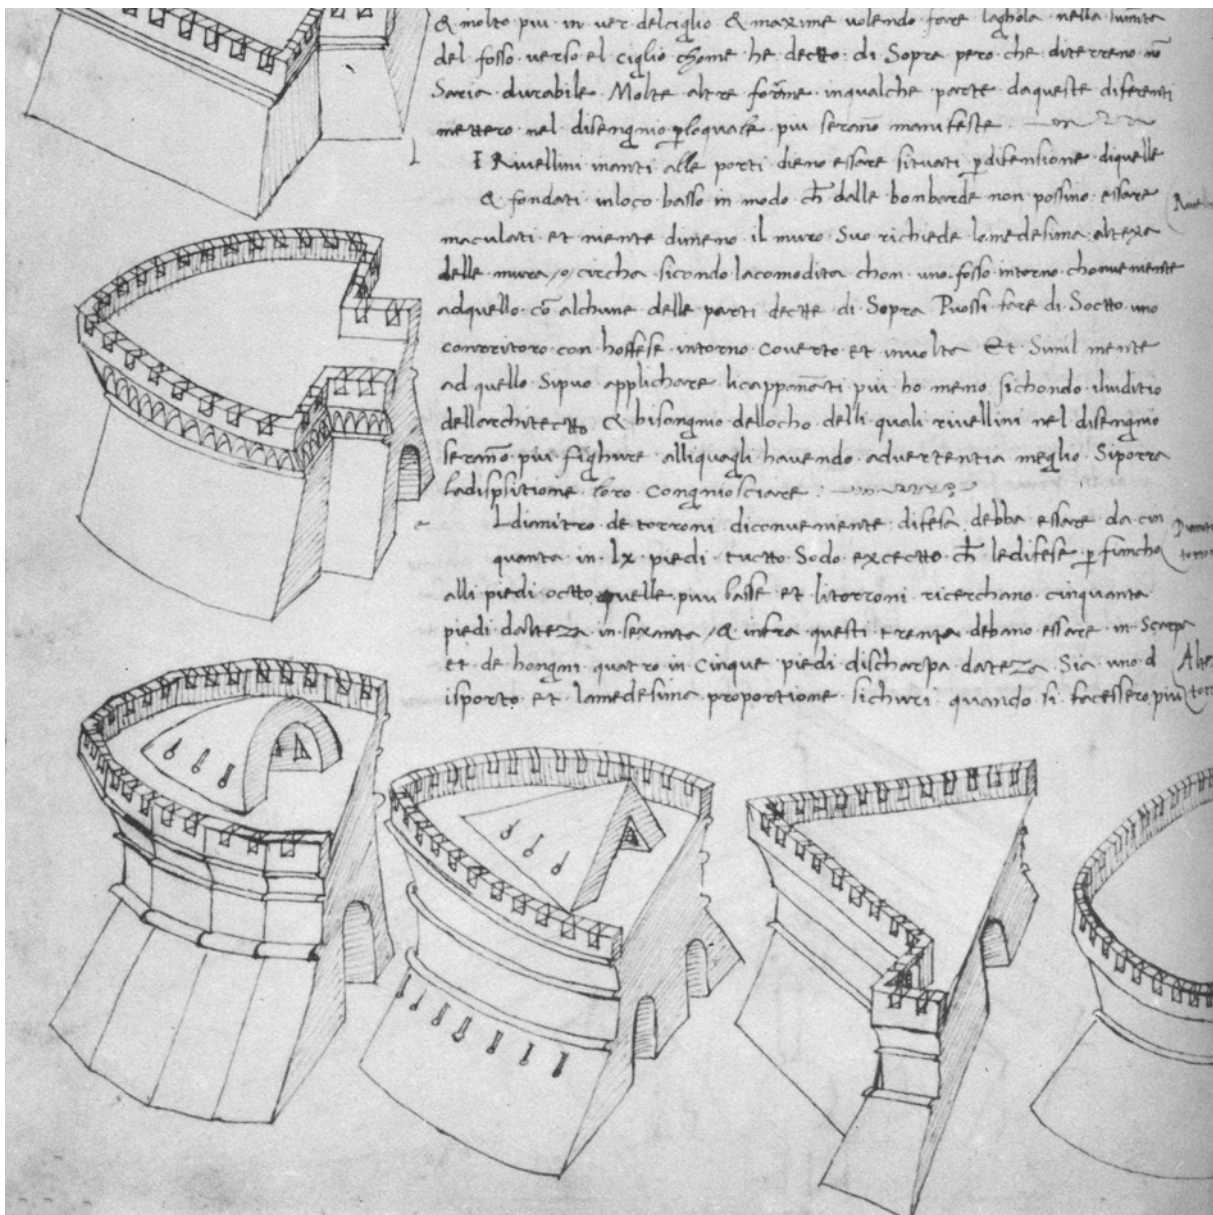 & molto piu in ver delciglio & maxime volendo fare laghola nella sumita
del fosso verso el ciglio chome he decto di Sopra pero che diterreno nō
Saria durabile Molte altre forme inqualche parte daqueste diferenti
mettero nel disengnio ploquale piu seranō manifeste
I Rivellini inanti alle porti dieno essare situati pdifensione diquelle
& fondati inloco basso in modo ch̄ dalle bonbarde non possino essare
maculati et niente dimeno il muro Suo richiede lamedesima altexa
delle mura /o/ circha sicondo lacomodita chon uno fosso intorno chonveniente
adquello cō alchune delle parti decte di Sopra Puossi fare di Soctto uno
corritoro con hoffese intorno coverto et involta Et Simil mente
ad quello Sipuo applichare licappanōati piu ho meno sichondo iliuditio
dellarchitectto & bisongnio dellocho delli quali rivellini nel disengnio
seranō piu fighure alliquagli havendo advertentia meglio Siporra
ladispsitione loro congniosciare
Ldiamitro de torroni diconveniente difesa debba essare da cin
quanta in lx piedi tuctto Sodo excectto ch̄ ledifese p fiancho
alli piedi octto quelle piu basse et litorroni ricerchano cinquanta
piedi dalteza in sexanta /& infra questi trenta debano essare in Scarpa
et de hongni quatro in cinque piedi discharpa dateza Sia uno d
isporto et lamedesima proportione sichuri quando si facessero piu